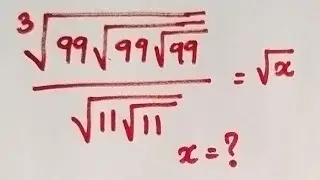 ∛(99√(99√99)) / √(11√11) = √x
x = ?